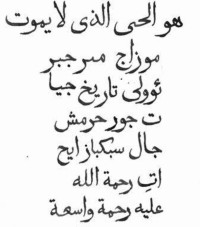 هو الحى الذى لا يموت
موزاج مىر جبر
ئوولى تاريخ جيا
ت جور حرمش
جال سبكباز ايح
اتِ رحمة الله
عليه رحمة واسعة